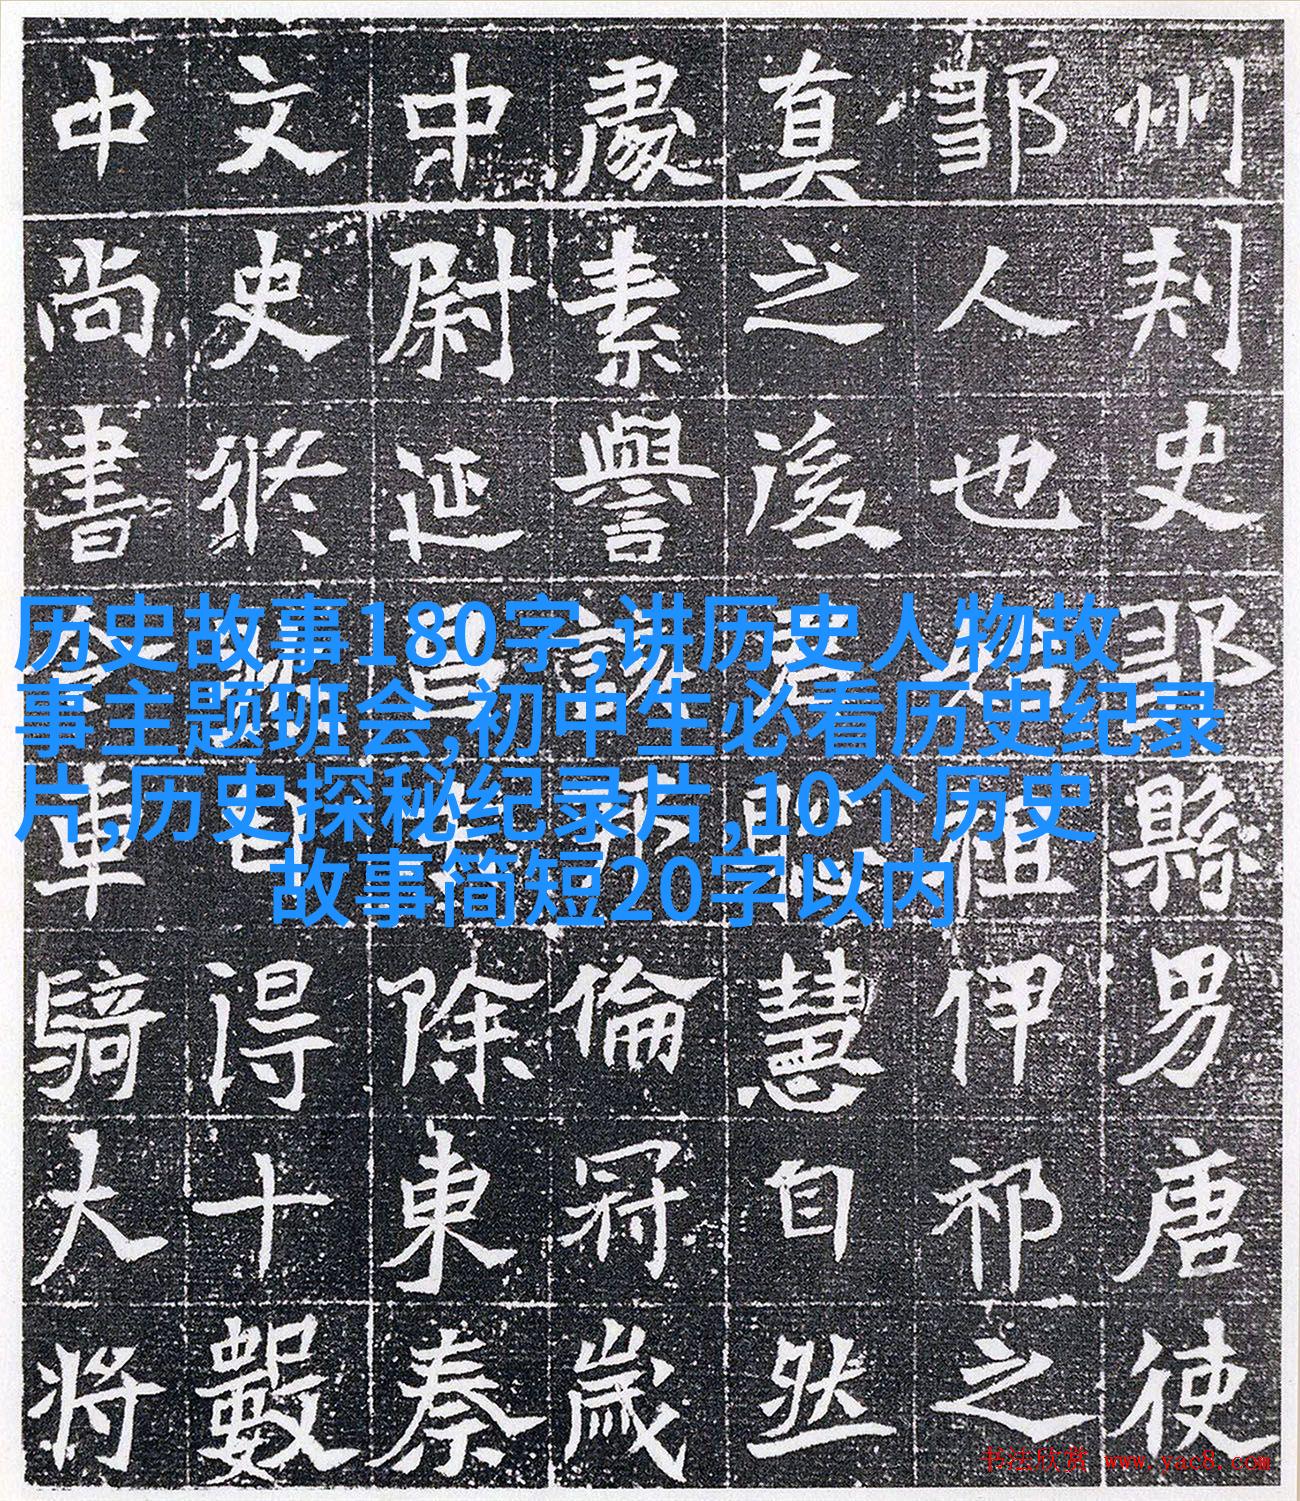 州刺史鄒縣男唐使
鄒人也始祖伊祁之
真之後君聰慧自然
處素譽談倫冠歲
中尉延昌除東秦
文史修得十數
中尚書軍騎大將
历史故事180字,讲历史人物故
事主题班会,初中生必看历史纪录
片,历史探秘纪录片,10个历史
故事简短20字以内
书法欣赏 www.yac8.com